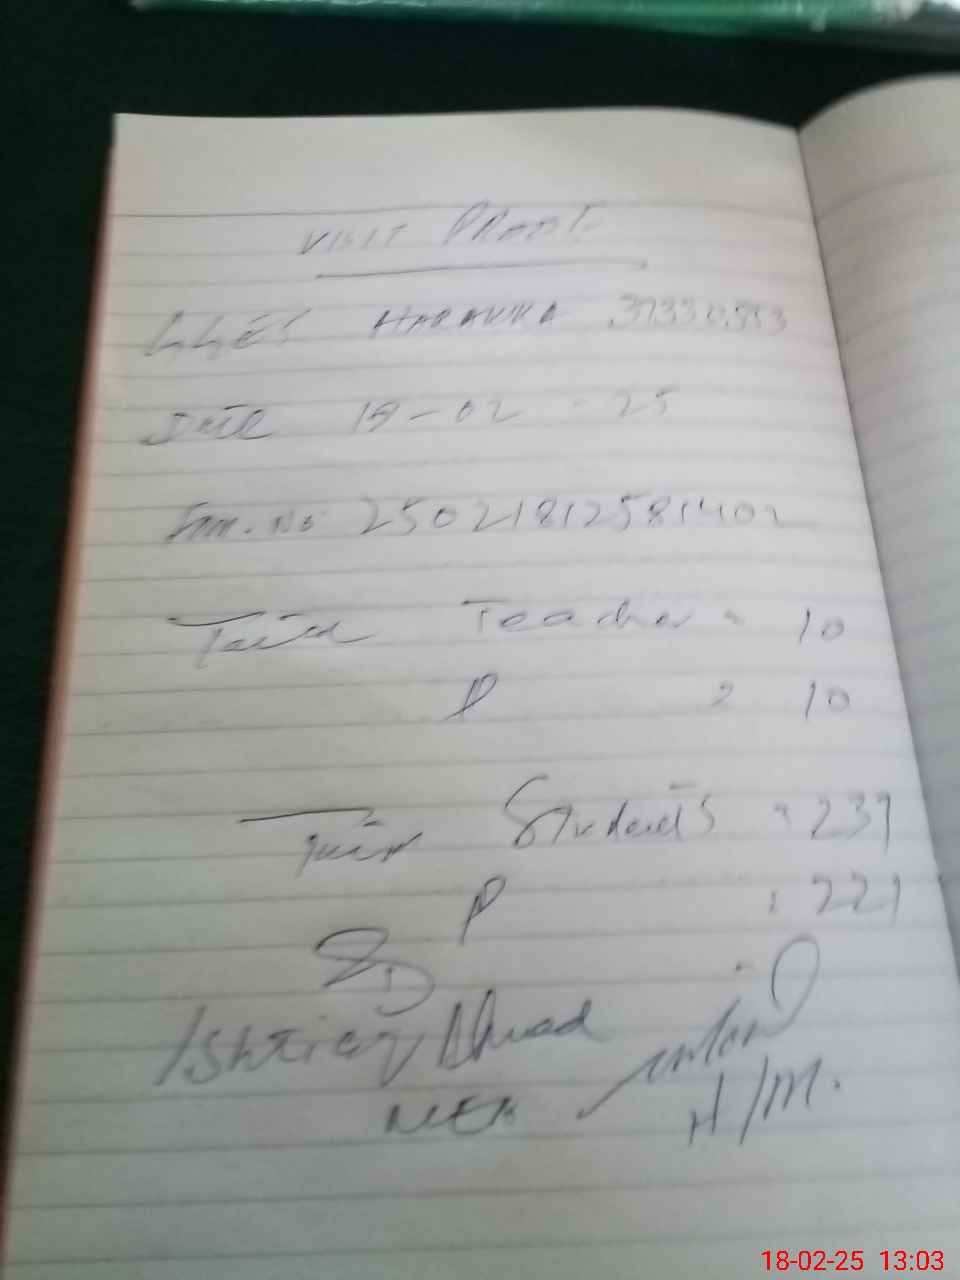 VISIT PROOF
GGES HARAKKA 37330553
Date 18-02-25
Fm. No 250218125811402
Total Teacher = 10
P = 10
Total Students = 237
P = 221
SD
Ishtiaq Ahmad
MEA
H/M.
18-02-25 13:03